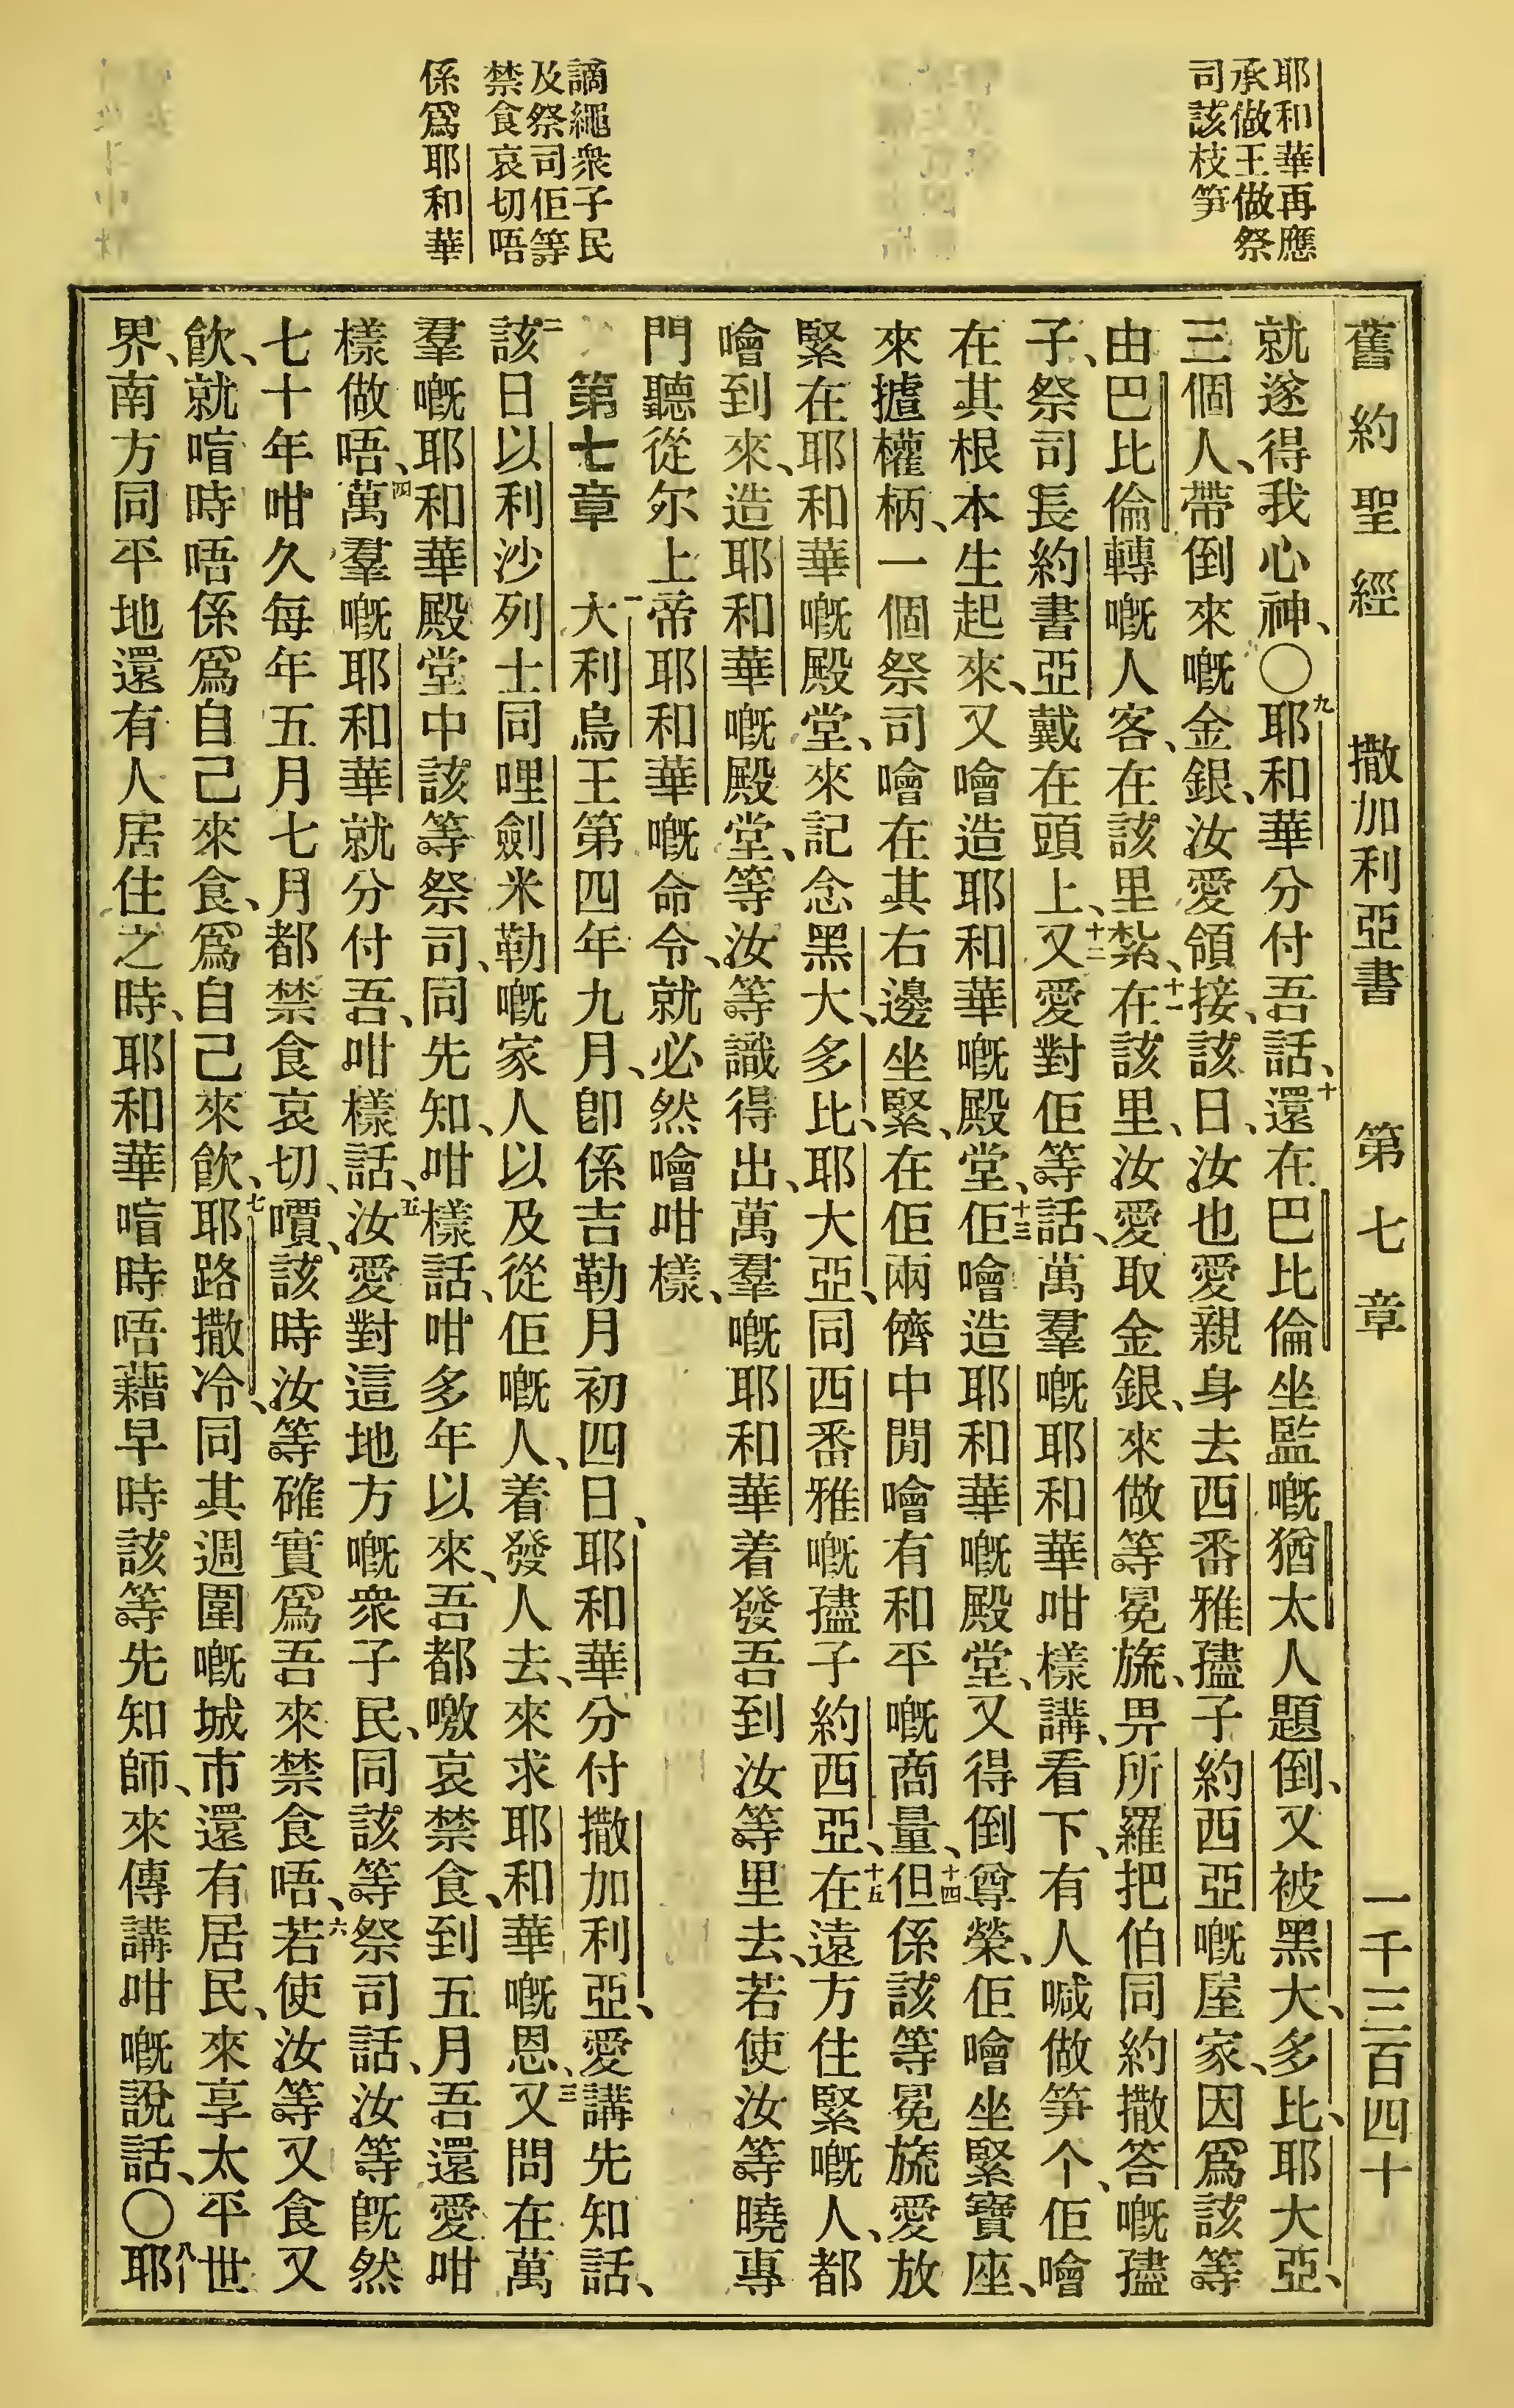 耶和華再應
承做王做祭
司該枝笋
謫繩衆子民
及祭司佢等
禁食哀切唔
係爲耶和華
舊約聖經 撒加利亞書 第七章 一千三百四十
就遂得我心神、〇九耶和華分付吾話、十還在巴比倫坐監嘅猶太人題倒、又被黑大、多比、耶大亞、
三個人、帶倒來嘅金銀、汝愛領接、該日、汝也愛親身去西番雅𡥧子約西亞嘅屋家、因爲該等
由巴比倫轉嘅人客、在該里紮、十一在該里、汝愛取金銀、來做等冕旒、畀所羅把伯同約撒答嘅𡥧
子、祭司長約書亞戴在頭上、十二又愛對佢等話、萬羣嘅耶和華咁樣講、看下、有人喊做笋个、佢噲
在其根本生起來、又噲造耶和華嘅殿堂、十三佢噲造耶和華嘅殿堂、又得倒尊榮、佢噲坐緊寶座、
來摣權柄、一個祭司噲在其右邊坐緊、在佢兩儕中閒噲有和平嘅商量、十四但係該等冕旒愛放
緊在耶和華嘅殿堂、來記念黑大、多比、耶大亞、同西番雅嘅𡥧子約西亞、十五在遠方住緊嘅人、都
噲到來、造耶和華嘅殿堂、等汝等識得出、萬羣嘅耶和華着發吾到汝等里去、若使汝等曉專
門聽從尔上帝耶和華嘅命令、就必然噲咁樣、
第七章 一大利烏王第四年九月、卽係吉勒月初四日、耶和華分付撒加利亞、愛講先知話、
二該日以利沙列士同哩劍米勒嘅家人以及從佢嘅人、着發人去、來求耶和華嘅恩、三又問在萬
羣嘅耶和華殿堂中該等祭司、同先知、咁樣話、咁多年以來、吾都噭哀禁食、到五月吾還愛咁
樣做唔、四萬羣嘅耶和華就分付吾、咁樣話、五汝愛對這地方嘅衆子民、同該等祭司話、汝等旣然
七十年咁久每年五月七月都禁食哀切、嘪該時汝等確實爲吾來禁食唔、六若使汝等又食又
飲、就喧時唔係爲自己來食、爲自己來飲、七耶路撒冷、同其週圍嘅城市還有居民、來享太平世
界、南方同平地還有人居住之時、耶和華喧時唔藉早時該等先知師、來傳講咁嘅說話、〇八耶